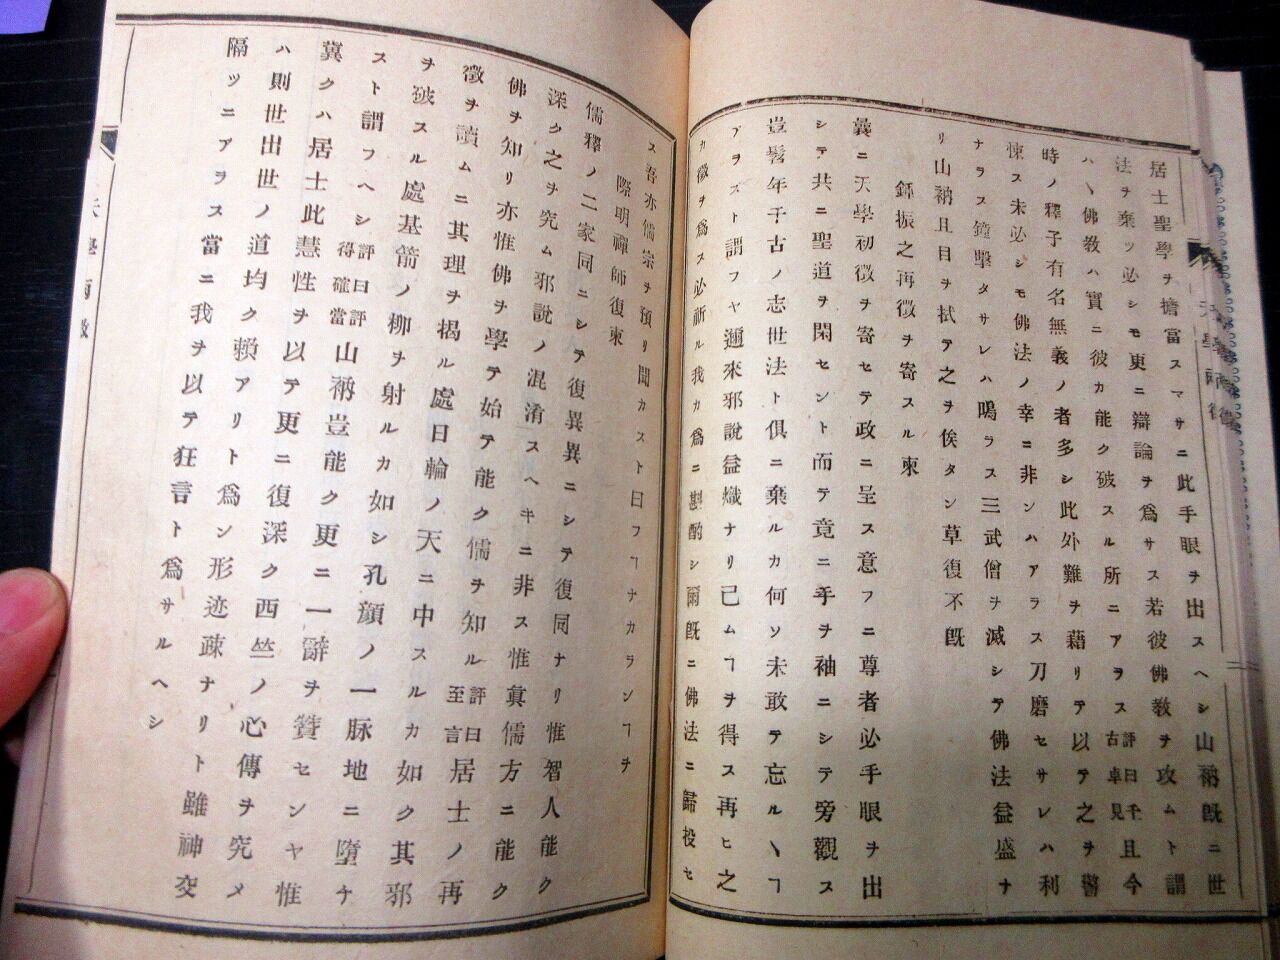 居士聖學ヲ擔當スマサニ此手眼ヲ出スヘシ山衲既ニ世
法ヲ棄ツ必シモ更ニ辯論ヲ爲サス若彼佛教ヲ攻ムト謂
ハヽ佛教ハ實ニ彼カ能ク破スル所ニアヲス評曰千古卓見且今
時ノ釋子有名無義ノ者多シ此外難ヲ藉リテ以テ之ヲ警
悚ス未必シモ佛法ノ幸ニ非ンハアラス刀磨セサレハ利
ナラス鐘擊タサレハ鳴ラス三武僧ヲ滅シテ佛法益盛ナ
リ山衲且目ヲ拭テ之ヲ俟タン草復不既
鍾振之再徵ヲ寄スル柬
曩ニ天學初徵ヲ寄セテ政ニ呈ス意フニ尊者必手眼ヲ出
シテ共ニ聖道ヲ閑セント而テ竟ニ手ヲ袖ニシテ旁觀ス
豈髫年千古ノ志世法ト俱ニ棄ルカ何ソ未敢テ忘ルヽヿ
ヲズト謂フヤ邇來邪說益熾ナリ已ムヿヲ得ス再ヒ之
カ徵ヲ爲ス必祈ル我カ爲ニ斟酌シ爾既ニ佛法ニ歸投セ
ス吾亦儒宗ヲ預リ聞カスト曰フヿナカランヿヲ
際明禪師復柬
儒釋ノ二家同ニシテ復異異ニシテ復同ナリ惟智人能ク
深ク之ヲ究ム邪說ノ混淆スヘキニ非ス惟眞儒方ニ能ク
佛ヲ知リ亦惟佛ヲ學テ始テ能ク儒ヲ知ル評曰至言居士ノ再
徵ヲ讀ムニ其理ヲ揭ル處日輪ノ天ニ中スルカ如ク其邪
ヲ破スル處基箭ノ柳ヲ射ルカ如シ孔顏ノ一脉地ニ墮ナ
スト謂フヘシ評曰評得確當山衲豈能ク更ニ一辭ヲ贊センヤ惟
冀クハ居士此慧性ヲ以テ更ニ復深ク西竺ノ心傳ヲ究メ
ハ則世出世ノ道均ク賴アリト爲ン形迹疎ナリト雖神交
隔ツニアヲス當ニ我ヲ以テ狂言ト爲サルヘシ
天學再徵